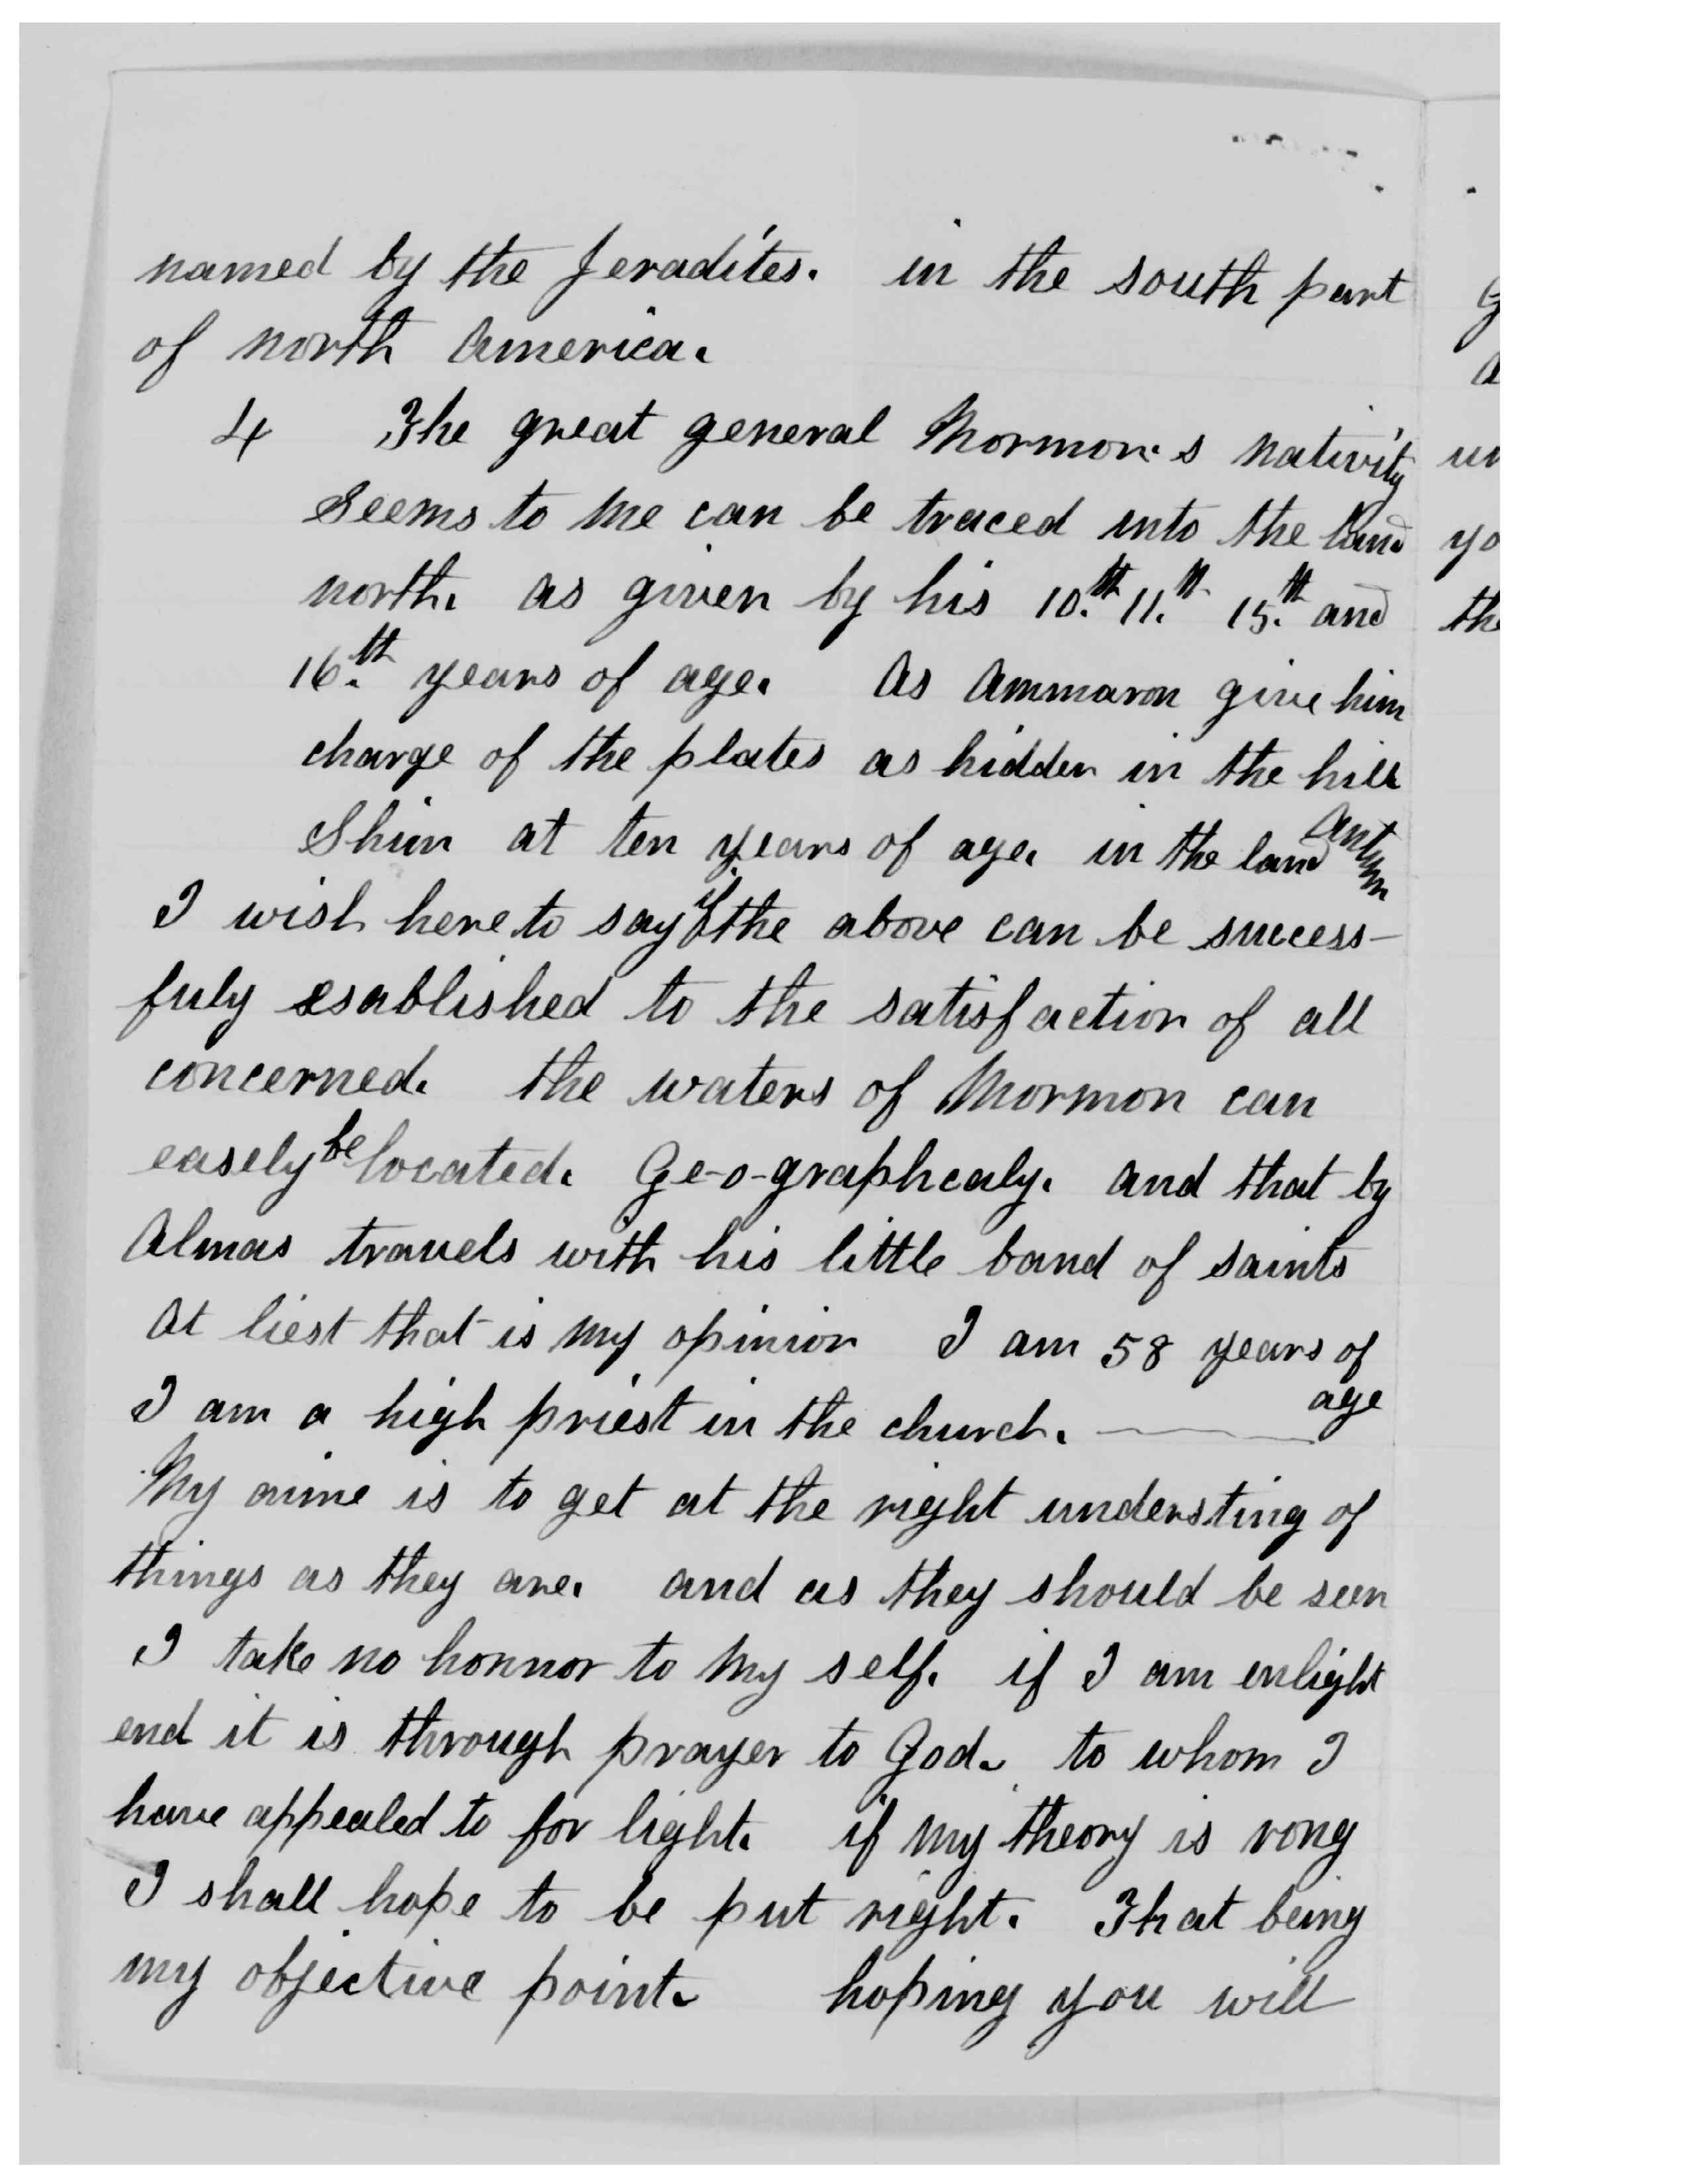 named by the Jeradites. in the south part
of north America.
4 The great general Mormon's nativity
seems to me can be traced into the land
north. as given by his 10.th 11.th 15.th and
16.th years of age. As Ammaron give him
charge of the plates as hidden in the hill
Shim at ten years of age. in the land Antum
I wish here to say if the above can be success-
fuly esablished to the satisfaction of all
concerned. the waters of Mormon can
easely be located. Ge-o-graphcaly. and that by
Almas travels with his little band of saints
At liest that is my opinion I am 58 years of
age
I am a high priest in the church.
My aime is to get at the right understing of
things as they are. and as they should be seen
I take no honnor to my self. if I am enlight
end it is through prayer to God. to whom I
have appealed to for light. if my theory is rong
I shall hope to be put right. That being
my objective point. hoping you will